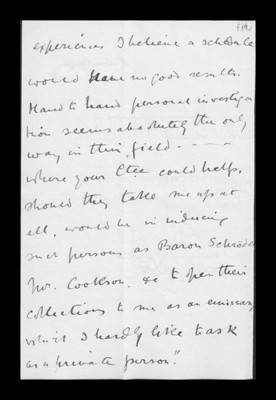 experiences I believe a schedule
would have no good results.
Hand to hand personal investiga
tion seems absolutely the only
way in this field. ——
where your Ctee could help,
should they take me up at
all, would be in inducing
such persons as Baron Schröder
Mr. Cookson, &c to open their
collections to me as an emissary
which I hardly like to ask
as a private person".